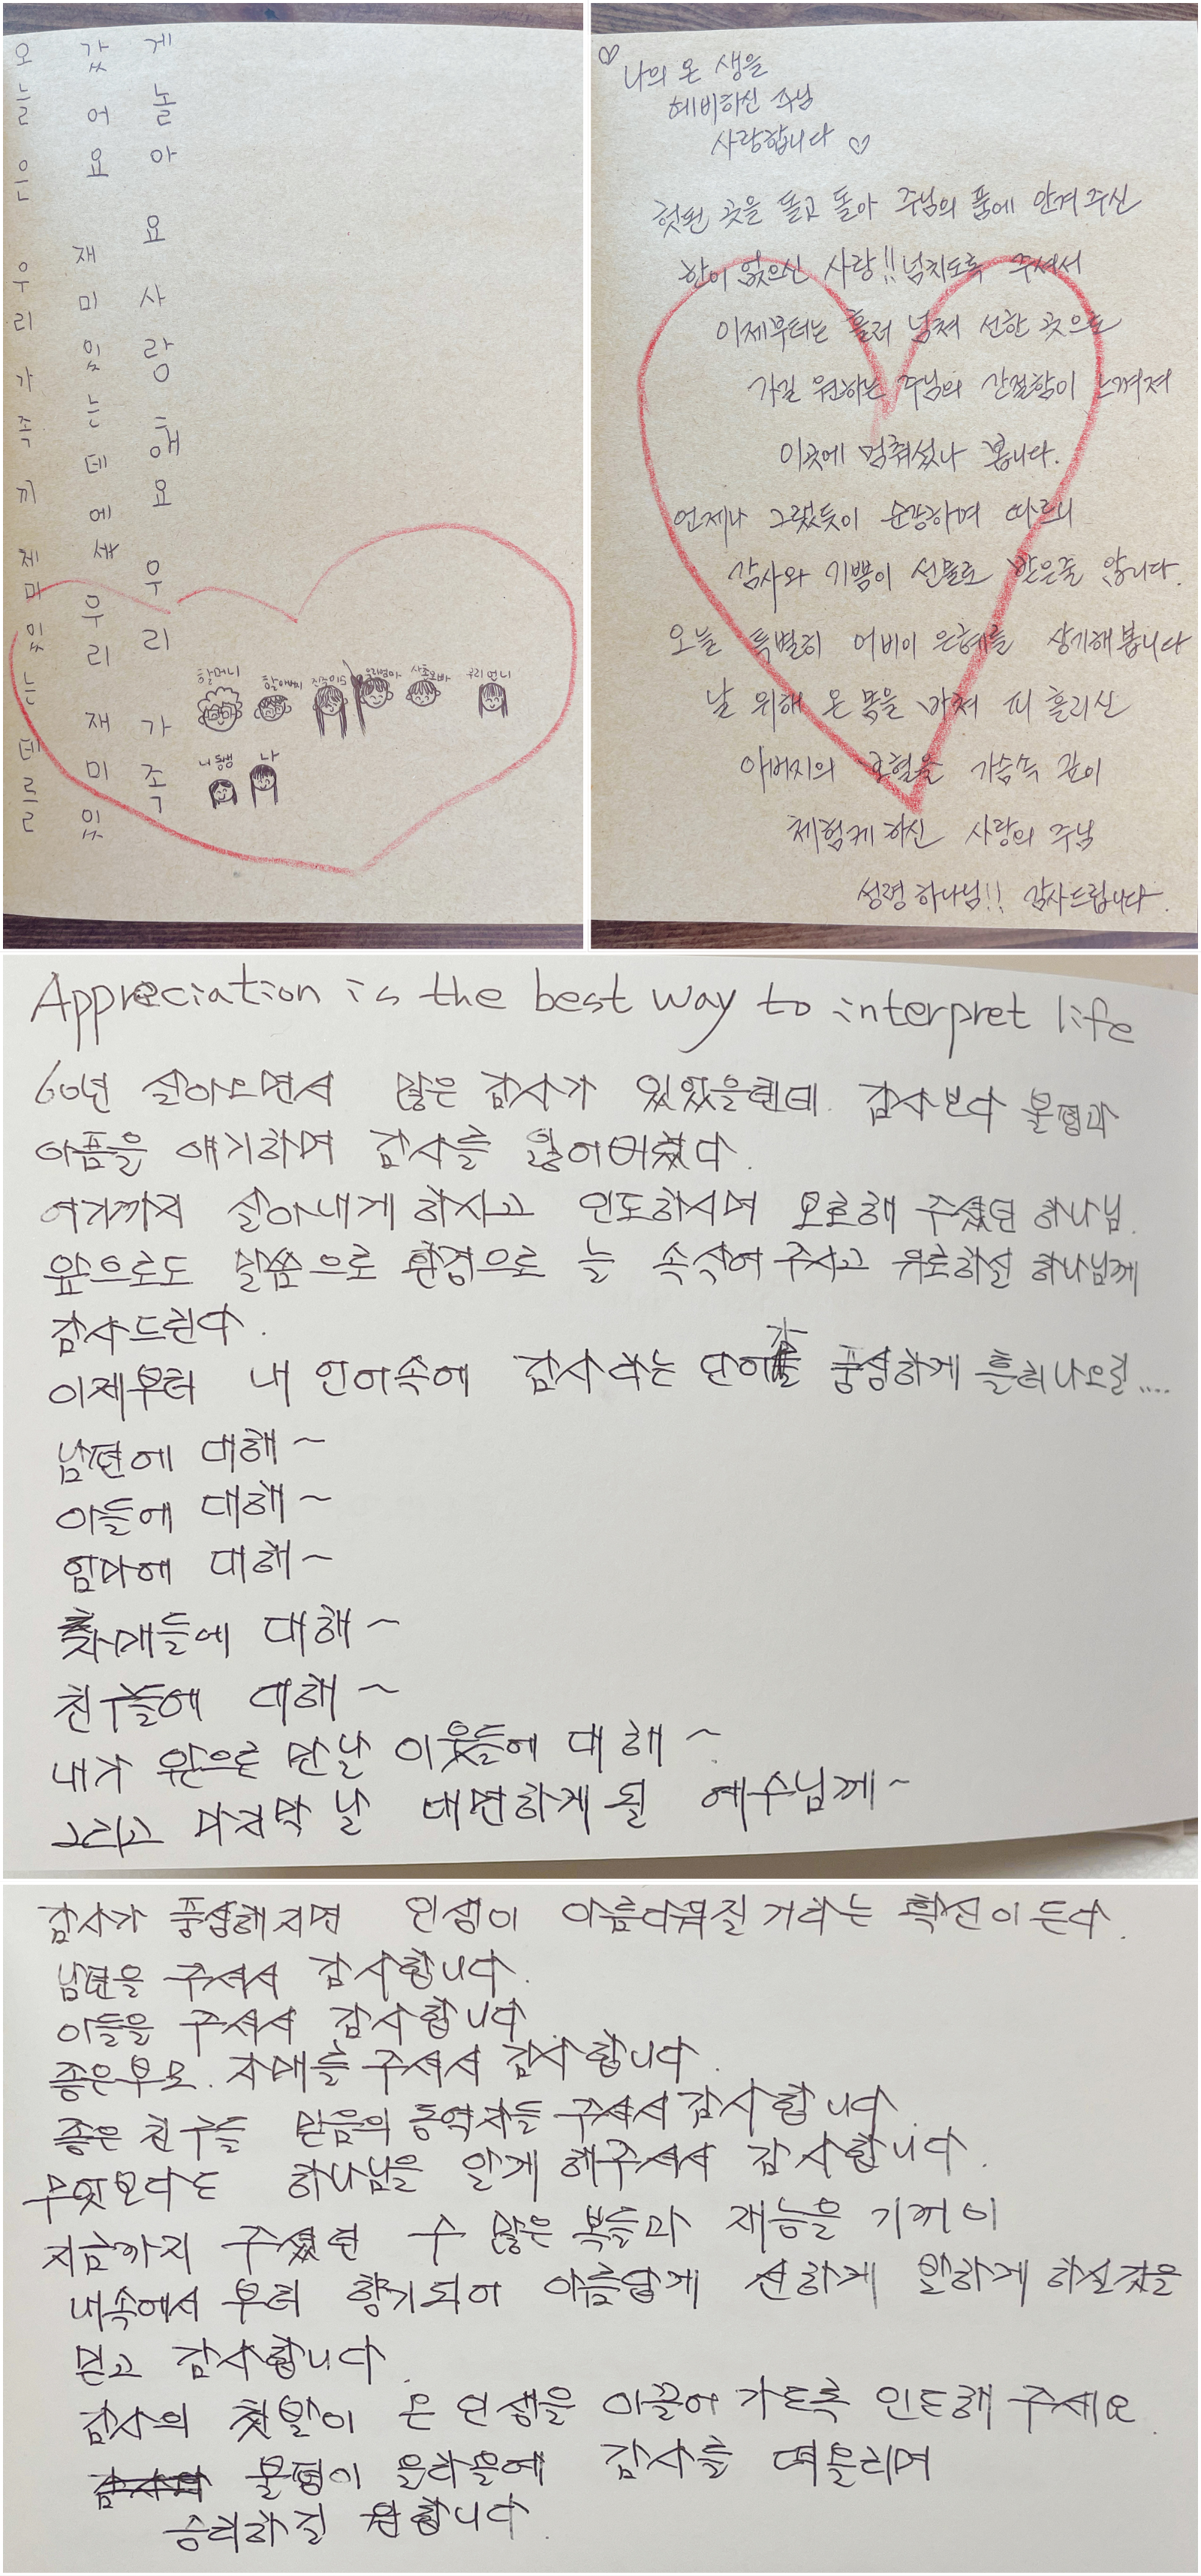 오늘은 우리 가족끼 제미있는데르르
갔어요 재미있는데에세 우리 재미있
게 놀아요 사랑해요 우리 가족
할머니
할아버지
우리엄마
사촌오빠
우리 언니
내동생
나
♡ 나의 온 생을
예비하신 주님
사랑합니다 ♡
헛된 곳을 돌고 돌아 주님의 품에 안겨 주신
한이 없으신 사랑!! 넘치도록 주셔서
이제부터는 흘러 넘쳐 선한 곳으로
가길 원하는 주님의 간절함이 느껴져
이곳에 멈춰섰나 봅니다.
언제나 그랬듯이 순종하며 따르니
감사와 기쁨이 선물로 받은줄 압니다.
오늘 특별히 어버이 은혜를 상기해봅니다
날 위해 온 몸을 바쳐 피 흘리신
아버지의 보혈을 가슴속 깊이
체험케 하신 사랑의 주님
성령 하나님!! 감사드립니다.
Appreciation is the best way to interpret life
60년 살아오면서 많은 감사가 있었을텐데. 감사보다 불평과
아픔을 얘기하며 감사를 잃어버렸다.
여기까지 살아내게 하시고 인도하시며 보호해 주셨던 하나님.
앞으로도 말씀으로 환경으로 늘 속삭여 주시고 위로하실 하나님께
감사드린다.
이제부터 내 언어속에 감사라는 단어가 풍성하게 흘러나오길....
남편에 대해~
아들에 대해~
엄마에 대해~
자매들에 대해~
친구들에 대해~
내가 앞으로 만날 이웃들에 대해~
그리고 마지막 날 대면하게 될 예수님께~
감사가 풍성해지면 인생이 아름다워질 거라는 확신이 든다.
남편을 주셔서 감사합니다.
아들을 주셔서 감사합니다.
좋은부모. 자매를 주셔서 감사합니다.
좋은 친구들 믿음의 동역자들 주셔서 감사합니다.
무엇보다도 하나님을 알게 해주셔서 감사합니다.
지금까지 주셨던 수 많은 복들과 재능을 기꺼이
내속에서 부터 향기되어 아름답게 선하게 말하게 하실것을
믿고 감사합니다.
감사의 첫발이 온 인생을 이끌어 가도록 인도해 주세요.
불평이 올라올때 감사를 떠올리며
승리하길 원합니다.